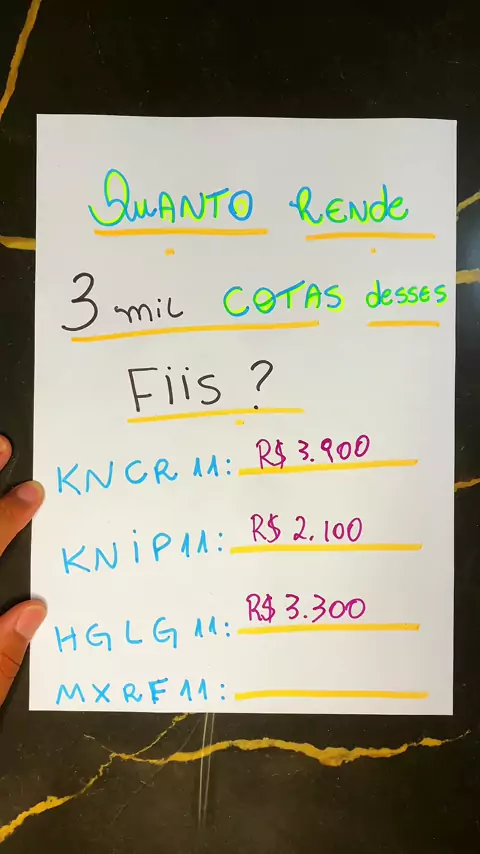 Quanto Rende
3 mil cotas desses
Fiis ?
KNCR11: R$ 3.900
KNIP11: R$ 2.100
HGLG11: R$ 3.300
MXRF11: